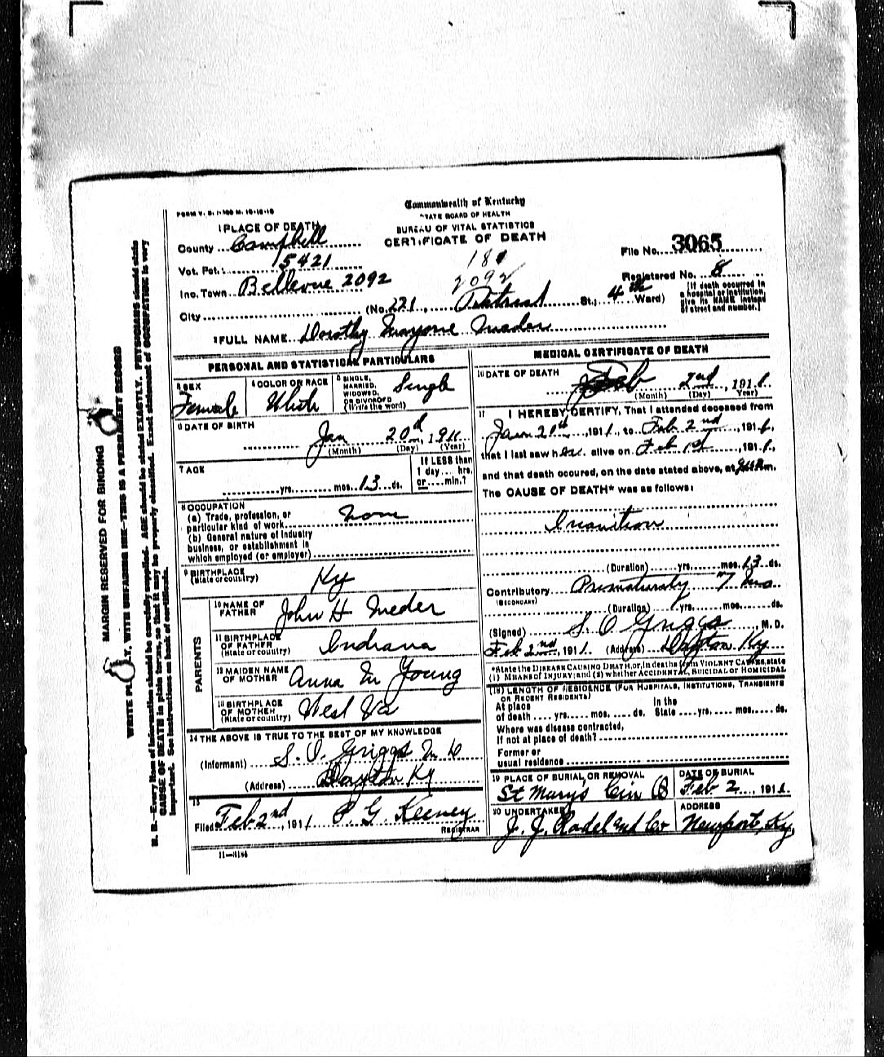 Commonwealth of Kentucky
STATE BOARD OF HEALTH
BUREAU OF VITAL STATISTICS
CERTIFICATE OF DEATH
1 PLACE OF DEATH
County Campbell
Vot. Pct. 15421
Inc. Town Bellevue 2092
2092
City (No. 221, St.; 4th Ward)
File No. 3065
Registered No. 8
[If death occurred in a hospital or institution, give its NAME instead of street and number.]
2 FULL NAME Dorothy
PERSONAL AND STATISTICAL PARTICULARS
3 SEX Female
4 COLOR OR RACE White
5 SINGLE, MARRIED, WIDOWED, OR DIVORCED (Write the word) Single
6 DATE OF BIRTH
Jan 20d, 1911
(Month) (Day) (Year)
7 AGE
yrs. mos. 13 ds.
If LESS than 1 day... hrs. or... min.?
8 OCCUPATION
(a) Trade, profession, or particular kind of work
(b) General nature of industry business, or establishment in which employed (or employer)
9 BIRTHPLACE (State or country) Ky
PARENTS
10 NAME OF FATHER John H Meder
11 BIRTHPLACE OF FATHER (State or country) Indiana
12 MAIDEN NAME OF MOTHER Anna M Young
13 BIRTHPLACE OF MOTHER (State or country) West Va
14 THE ABOVE IS TRUE TO THE BEST OF MY KNOWLEDGE
(Informant) S. O. Griggs M D
(Address) Dayton Ky
15
Filed Feb 2nd, 1911 P. G. Keeney
REGISTRAR
11-3184
MEDICAL CERTIFICATE OF DEATH
16 DATE OF DEATH
Feb 2nd, 1911
(Month) (Day) (Year)
17 I HEREBY CERTIFY, That I attended deceased from
1911, to Feb 2nd, 1911,
that I last saw her alive on Feb 1st, 1911,
and that death occured, on the date stated above, at
The CAUSE OF DEATH* was as follows:
Inanition
(Duration) yrs. mos. 13 ds.
Contributory Prematurity 7 mo
(SECONDARY)
(Duration) yrs. mos. ds.
(Signed) S. O. Griggs, M. D.
Feb 2nd, 1911. (Address) Dayton Ky
*State the DISEASE CAUSING DEATH, or, in deaths from VIOLENT CAUSES, state (1) MEANS of INJURY; and (2) whether ACCIDENTAL, SUICIDAL or HOMICIDAL
18 LENGTH OF RESIDENCE (FOR HOSPITALS, INSTITUTIONS, TRANSIENTS OR RECENT RESIDENTS)
At place of death yrs. mos. ds. In the State yrs. mos. ds.
Where was disease contracted, If not at place of death?
Former or usual residence
19 PLACE OF BURIAL OR REMOVAL St Marys Cin O
DATE OF BURIAL Feb 2, 1911.
20 UNDERTAKER J. J. Radel and Co
ADDRESS Newport, Ky
MARGIN RESERVED FOR BINDING
WRITE PLAINLY, WITH UNFADING INK—THIS IS A PERMANENT RECORD
N. B.—Every item of information should be carefully supplied. AGE should be stated EXACTLY. PHYSICIANS should state
CAUSE OF DEATH in plain terms, so that it may be properly classified. Exact statement of OCCUPATION is very
important. See instructions on back of certificate.